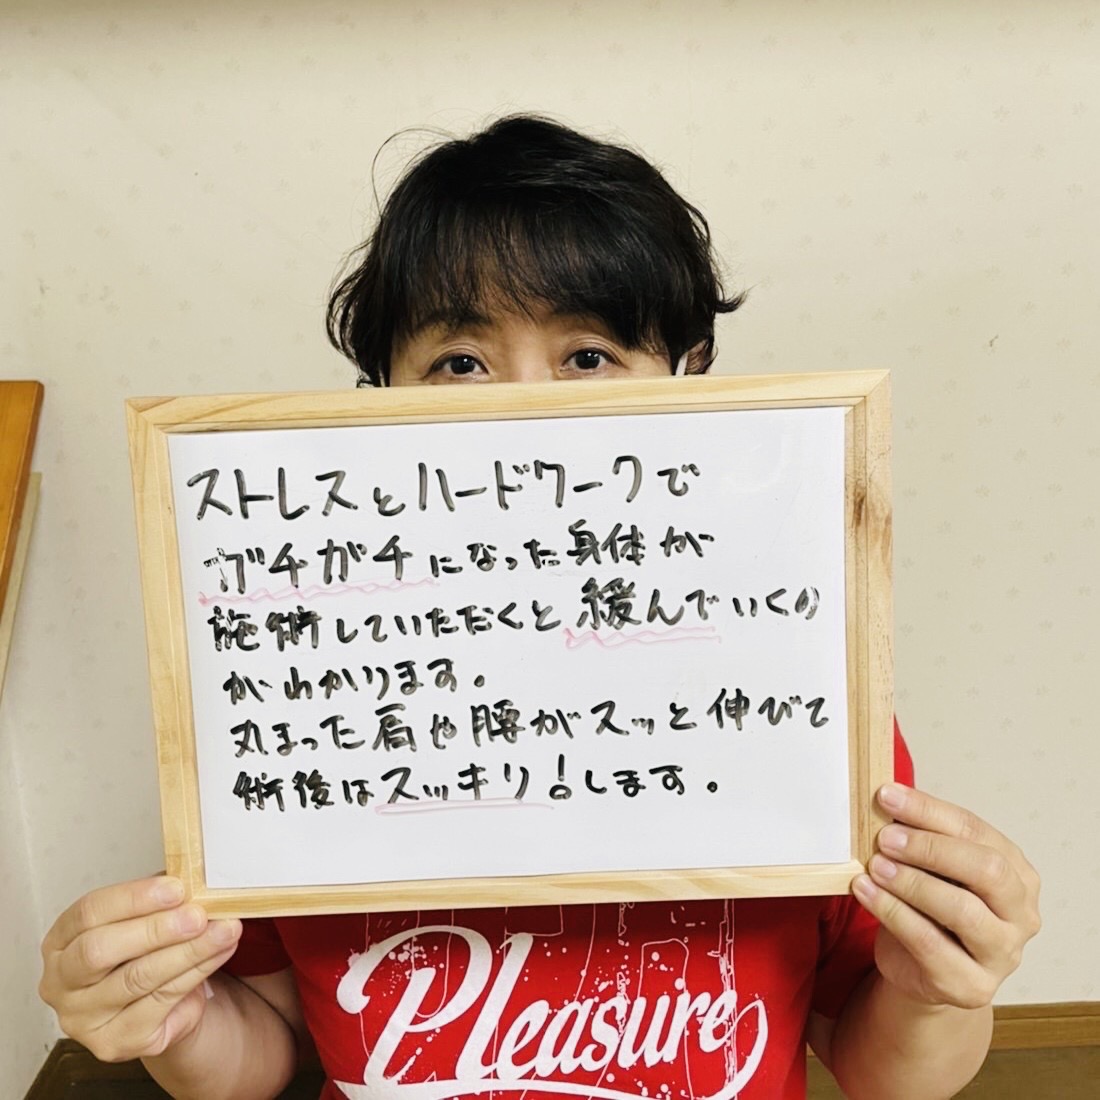 ストレスとハードワークで
ガチガチになった身体が
施術していただくと緩んでいくの
がわかります。
丸まった肩や腰がスッと伸びて
術後はスッキリ！します。
Pleasure